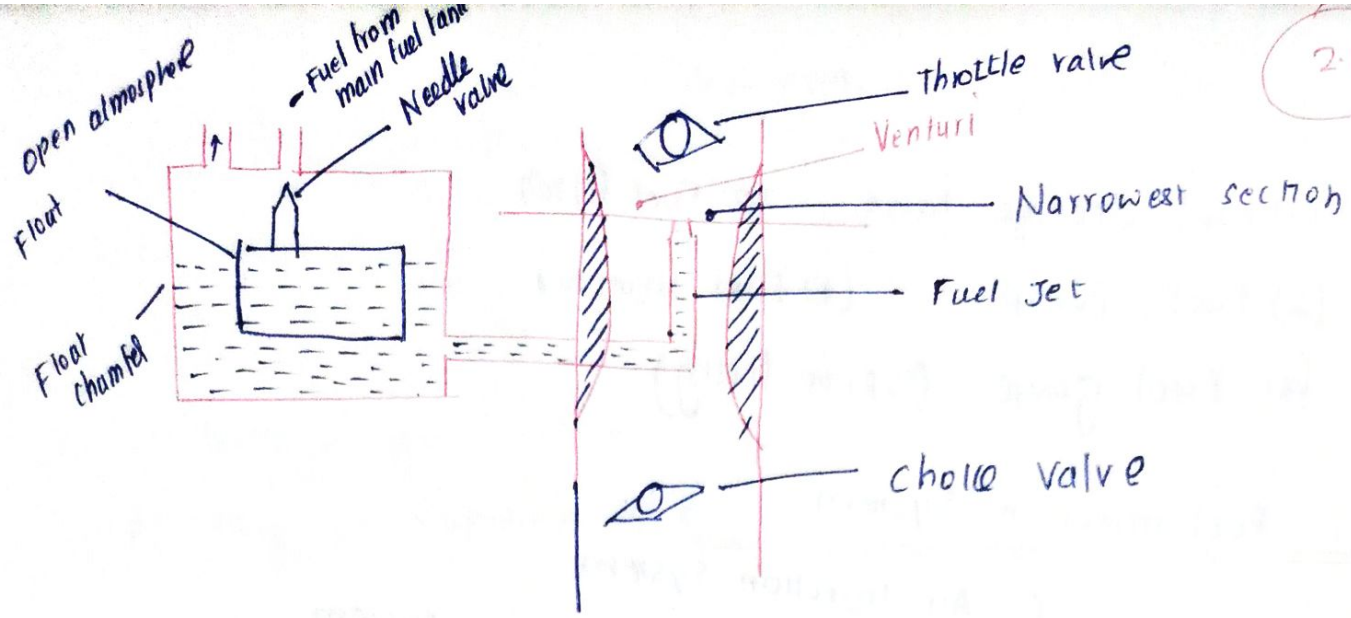 open atmosphere
- Fuel from
main fuel tank
Needle
valve
Float
Float
chamfel
Throttle valve
Venturi
Narrowest section
Fuel Jet
choke valve
2.